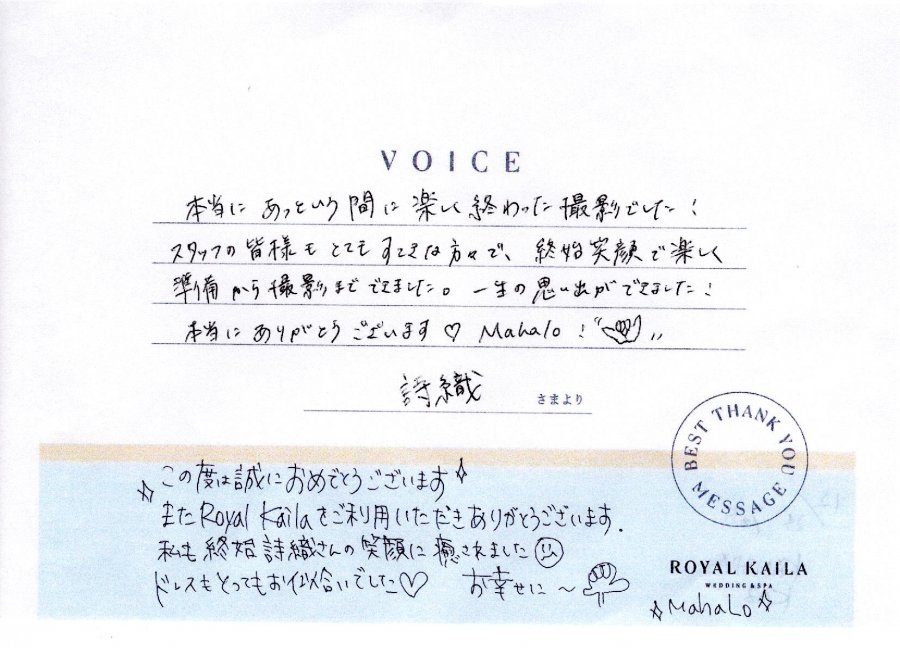 VOICE
本当に あっという間に楽しく終わった撮影でした！
スタッフの皆様も とても すてきな方々で、終始笑顔で楽しく
準備から撮影まで できました。一生の思い出ができました！
本当に ありがとう ございます♡ Mahalo！
詩織 さまより
BEST THANK YOU MESSAGE
この度は誠におめでとうございます
また Royal Kailaをご利用いただきありがとうございます．
私も終始詩織さんの笑顔に癒されました
ドレスもとってもお似合いでした♡ お幸せに〜
ROYAL KAILA
WEDDING & SPA
Mahalo